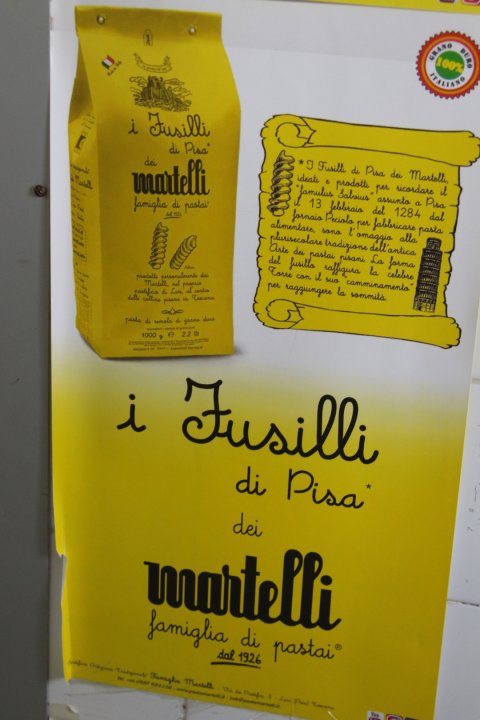 i Fusilli
di Pisa*
dei
martelli
famiglia di pastai®
dal 1926
prodotti personalmente dai
Martelli, nel proprio
pastificio di Lari, al centro
delle colline pisane in Toscana
pasta di semola di grano duro
1000 g e 2.2 lb
GRANO DURO
100%
ITALIANO
* I Fusilli di Pisa dei Martelli,
ideati e prodotti per ricordare il
"famulus Salvius" assunto a Pisa
il 13 febbraio del 1284 dal
fornaio Piciolo per fabbricare pasta
alimentare, sono l'omaggio alla
plurisecolare tradizione dell'antica
Arte dei pastai pisani. La forma
del fusillo raffigura la celebre
Torre con il suo camminamento
per raggiungere la sommità.
i Fusilli
di Pisa*
dei
martelli
famiglia di pastai®
dal 1926
Famiglia Martelli